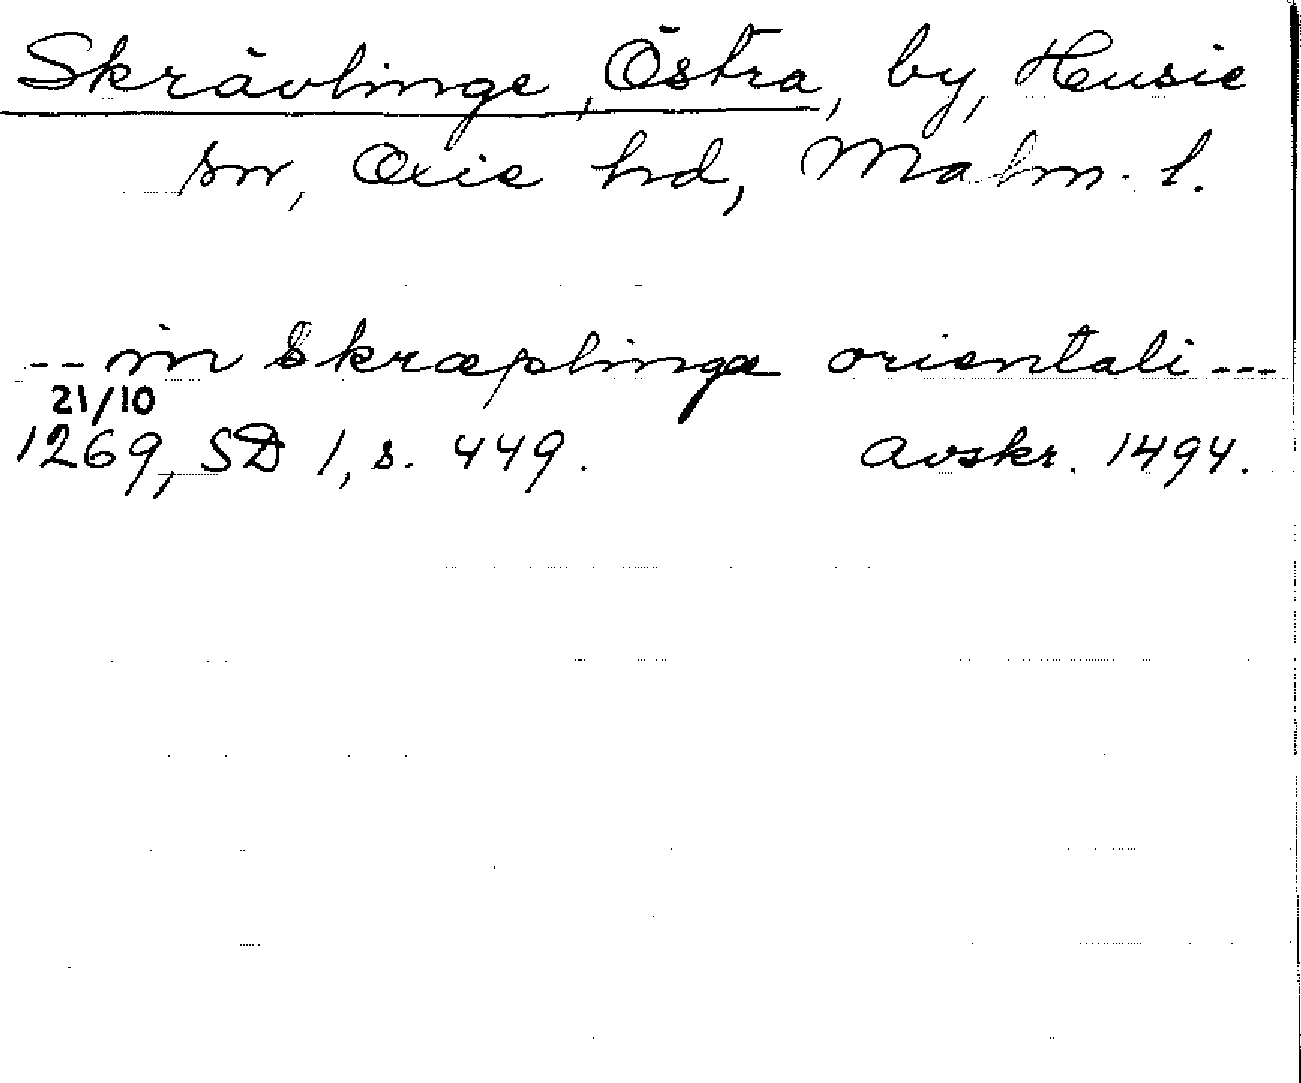 Skrävlinge, Östra, by, Husie
sn, Oxie hd, Malm. l.
-- in Skræplingæ orientali ---
21/10
1269, SD 1, s. 449. Avskr. 1494.